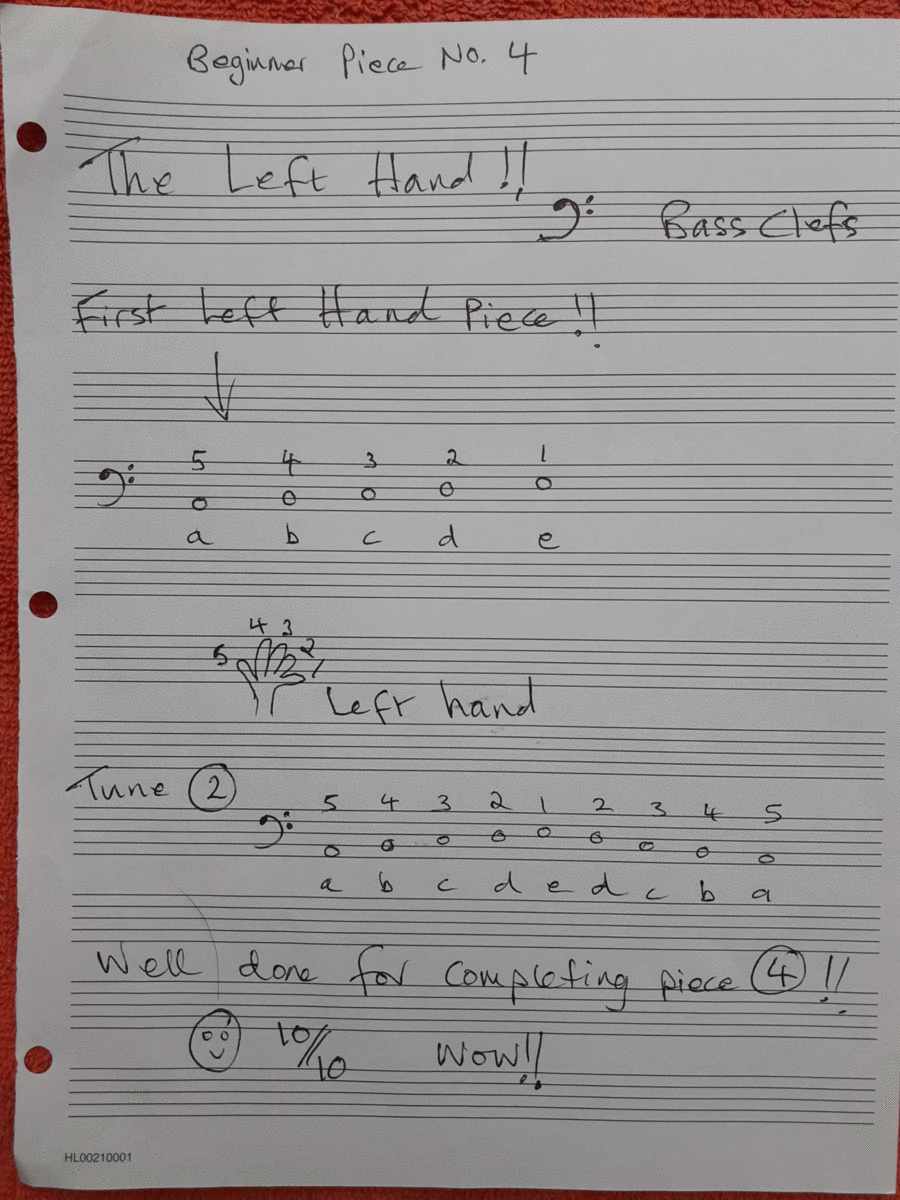 Beginner Piece No. 4
The Left Hand!!
Bass Clefs
First Left Hand Piece!!
5 4 3 2 1
a b c d e
4 3
5 2 1
Left hand
Tune 2
5 4 3 2 1 2 3 4 5
a b c d e d c b a
Well done for completing piece 4!!
10/10 WOW!!
HL00210001